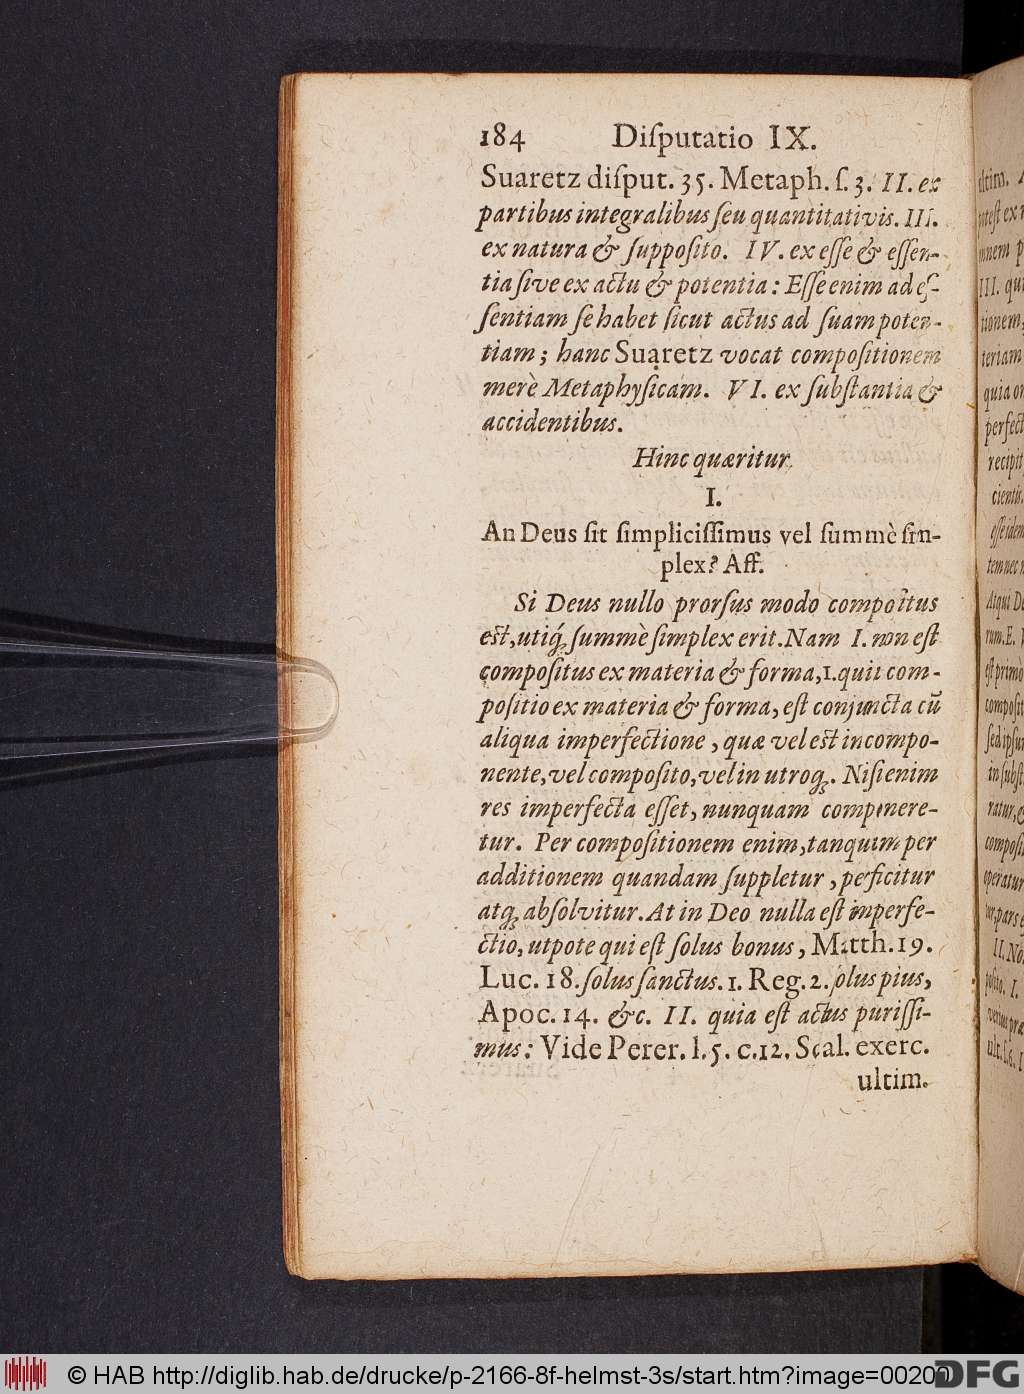 184 Diſputatio IX.
Suaretz diſput. 35. Metaph. ſ. 3. II. ex
partibus integralibus ſeu quantitativis. III.
ex natura & ſuppoſito. IV. ex eſſe & eſſen-
tia ſive ex actu & potentia: Eſſe enim ad eſ-
ſentiam ſe habet ſicut actus ad ſuam poten-
tiam; hanc Suaretz vocat compoſitionem
merè Metaphyſicam. VI. ex ſubſtantia &
accidentibus.
Hinc quæritur
I.
An Deus ſit ſimpliciſſimus vel ſummè ſim-
plex? Aff.
Si Deus nullo prorſus modo compoſitus
eſt, utiq; ſummè ſimplex erit. Nam I. non eſt
compoſitus ex materia & forma, 1. quia com-
poſitio ex materia & forma, eſt conjuncta cū
aliqua imperfectione, quæ vel eſt in compo-
nente, vel compoſito, vel in utroq;. Niſi enim
res imperfecta eſſet, nunquam componere-
tur. Per compoſitionem enim, tanquam per
additionem quandam ſuppletur, perficitur
atq; abſolvitur. At in Deo nulla eſt imperfe-
ctio, utpote qui eſt ſolus bonus, Matth. 19.
Luc. 18. ſolus ſanctus. 1. Reg. 2. ſolus pius,
Apoc. 14. &c. II. quia eſt actus puriſſi-
mus: Vide Perer. l. 5. c. 12. Scal. exerc.
ultim.
© HAB http://diglib.hab.de/drucke/p-2166-8f-helmst-3s/start.htm?image=00200
DFG